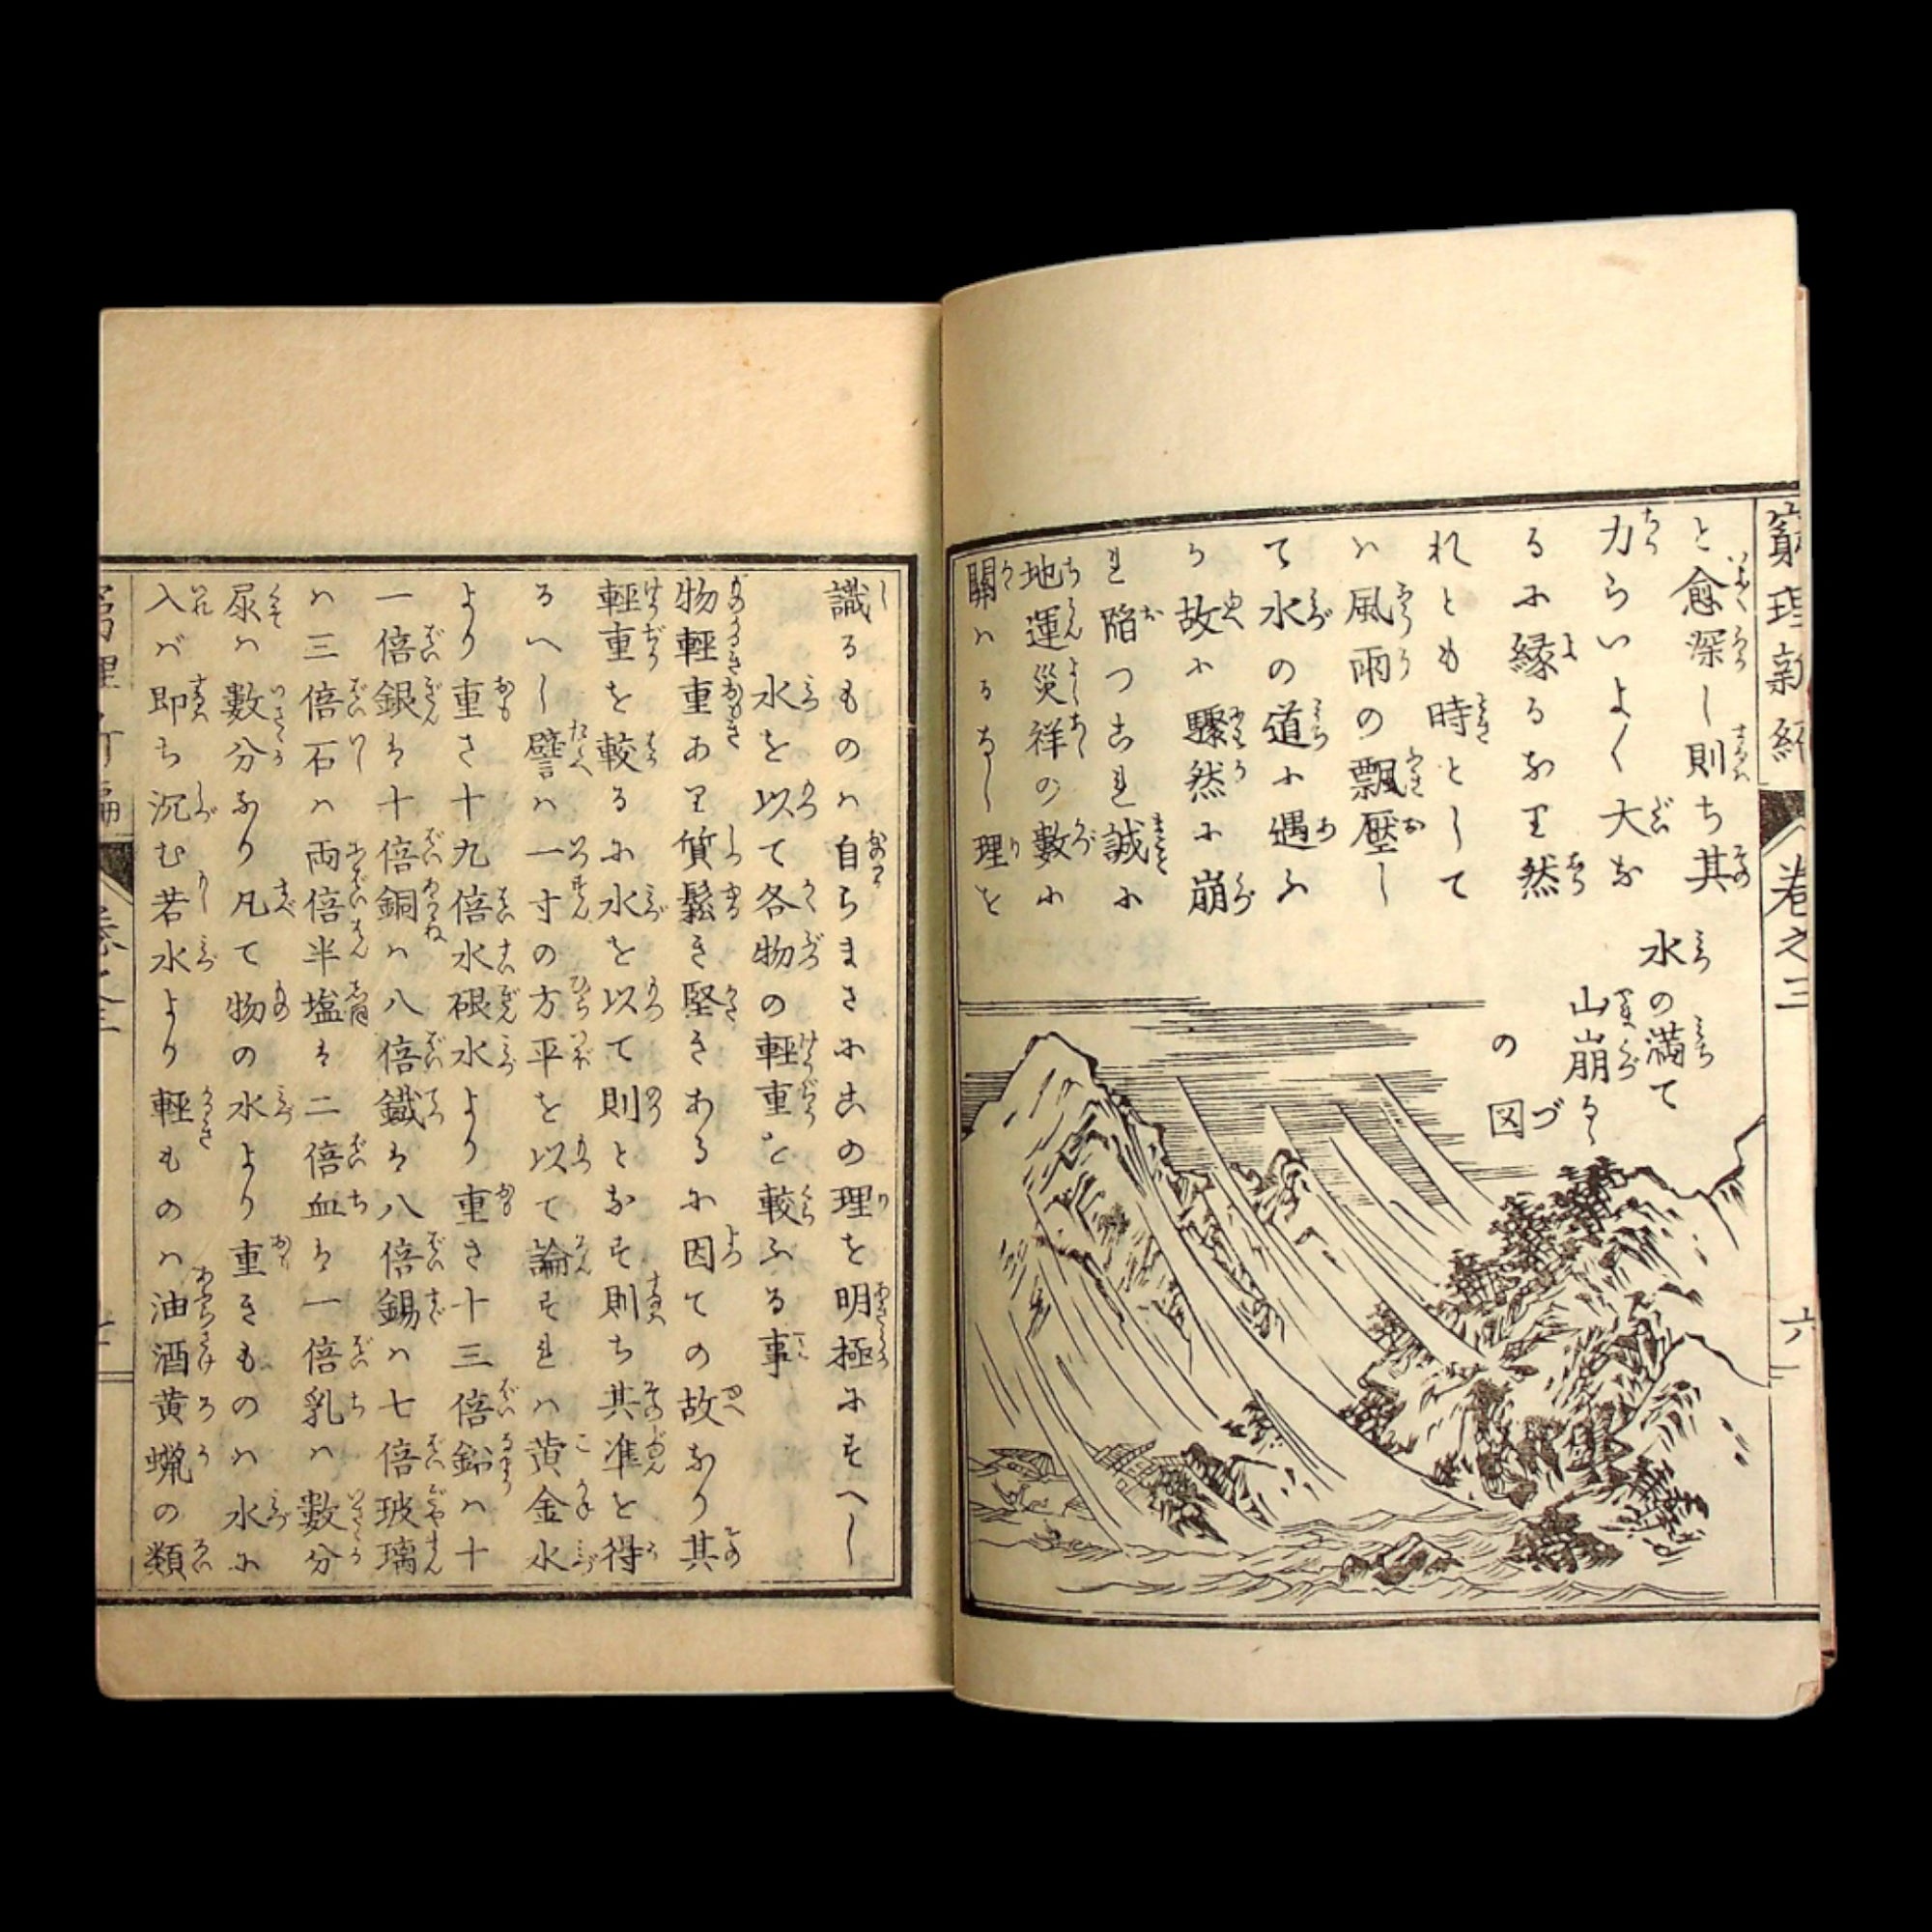 窮理新編 卷之三 六
と愈深し則ち其
力らいよ〱大な
るに縁るなり然
れとも時として
ハ風雨の飄壓し
て水の道に遇ふ
う故に驟然に崩
れ陥つこれ誠に
地運災祥の數に
關ハるなし理を
水の満て
山崩るゝ
の図
識るものハ自らまさにこの理を明極にすへし
水を以て各物の輕重を較ふる事
物輕重あり質鬆き堅きあるに因ての故なり其
輕重を較るに水を以て則となす則ち其準を得
るへし譬ハ一寸の方平を以て論すれハ黄金水
より重さ十九倍水硍水より重さ十三倍鉛ハ十
一倍銀ハ十倍銅ハ八倍鐵ハ八倍錫ハ七倍玻璃
ハ三倍石ハ両倍半塩ハ二倍血ハ一倍乳ハ數分
尿ハ數分なり凡て物の水より重きものハ水に
入バ即ち沉む若水より輕ものハ油酒黄蝋の類